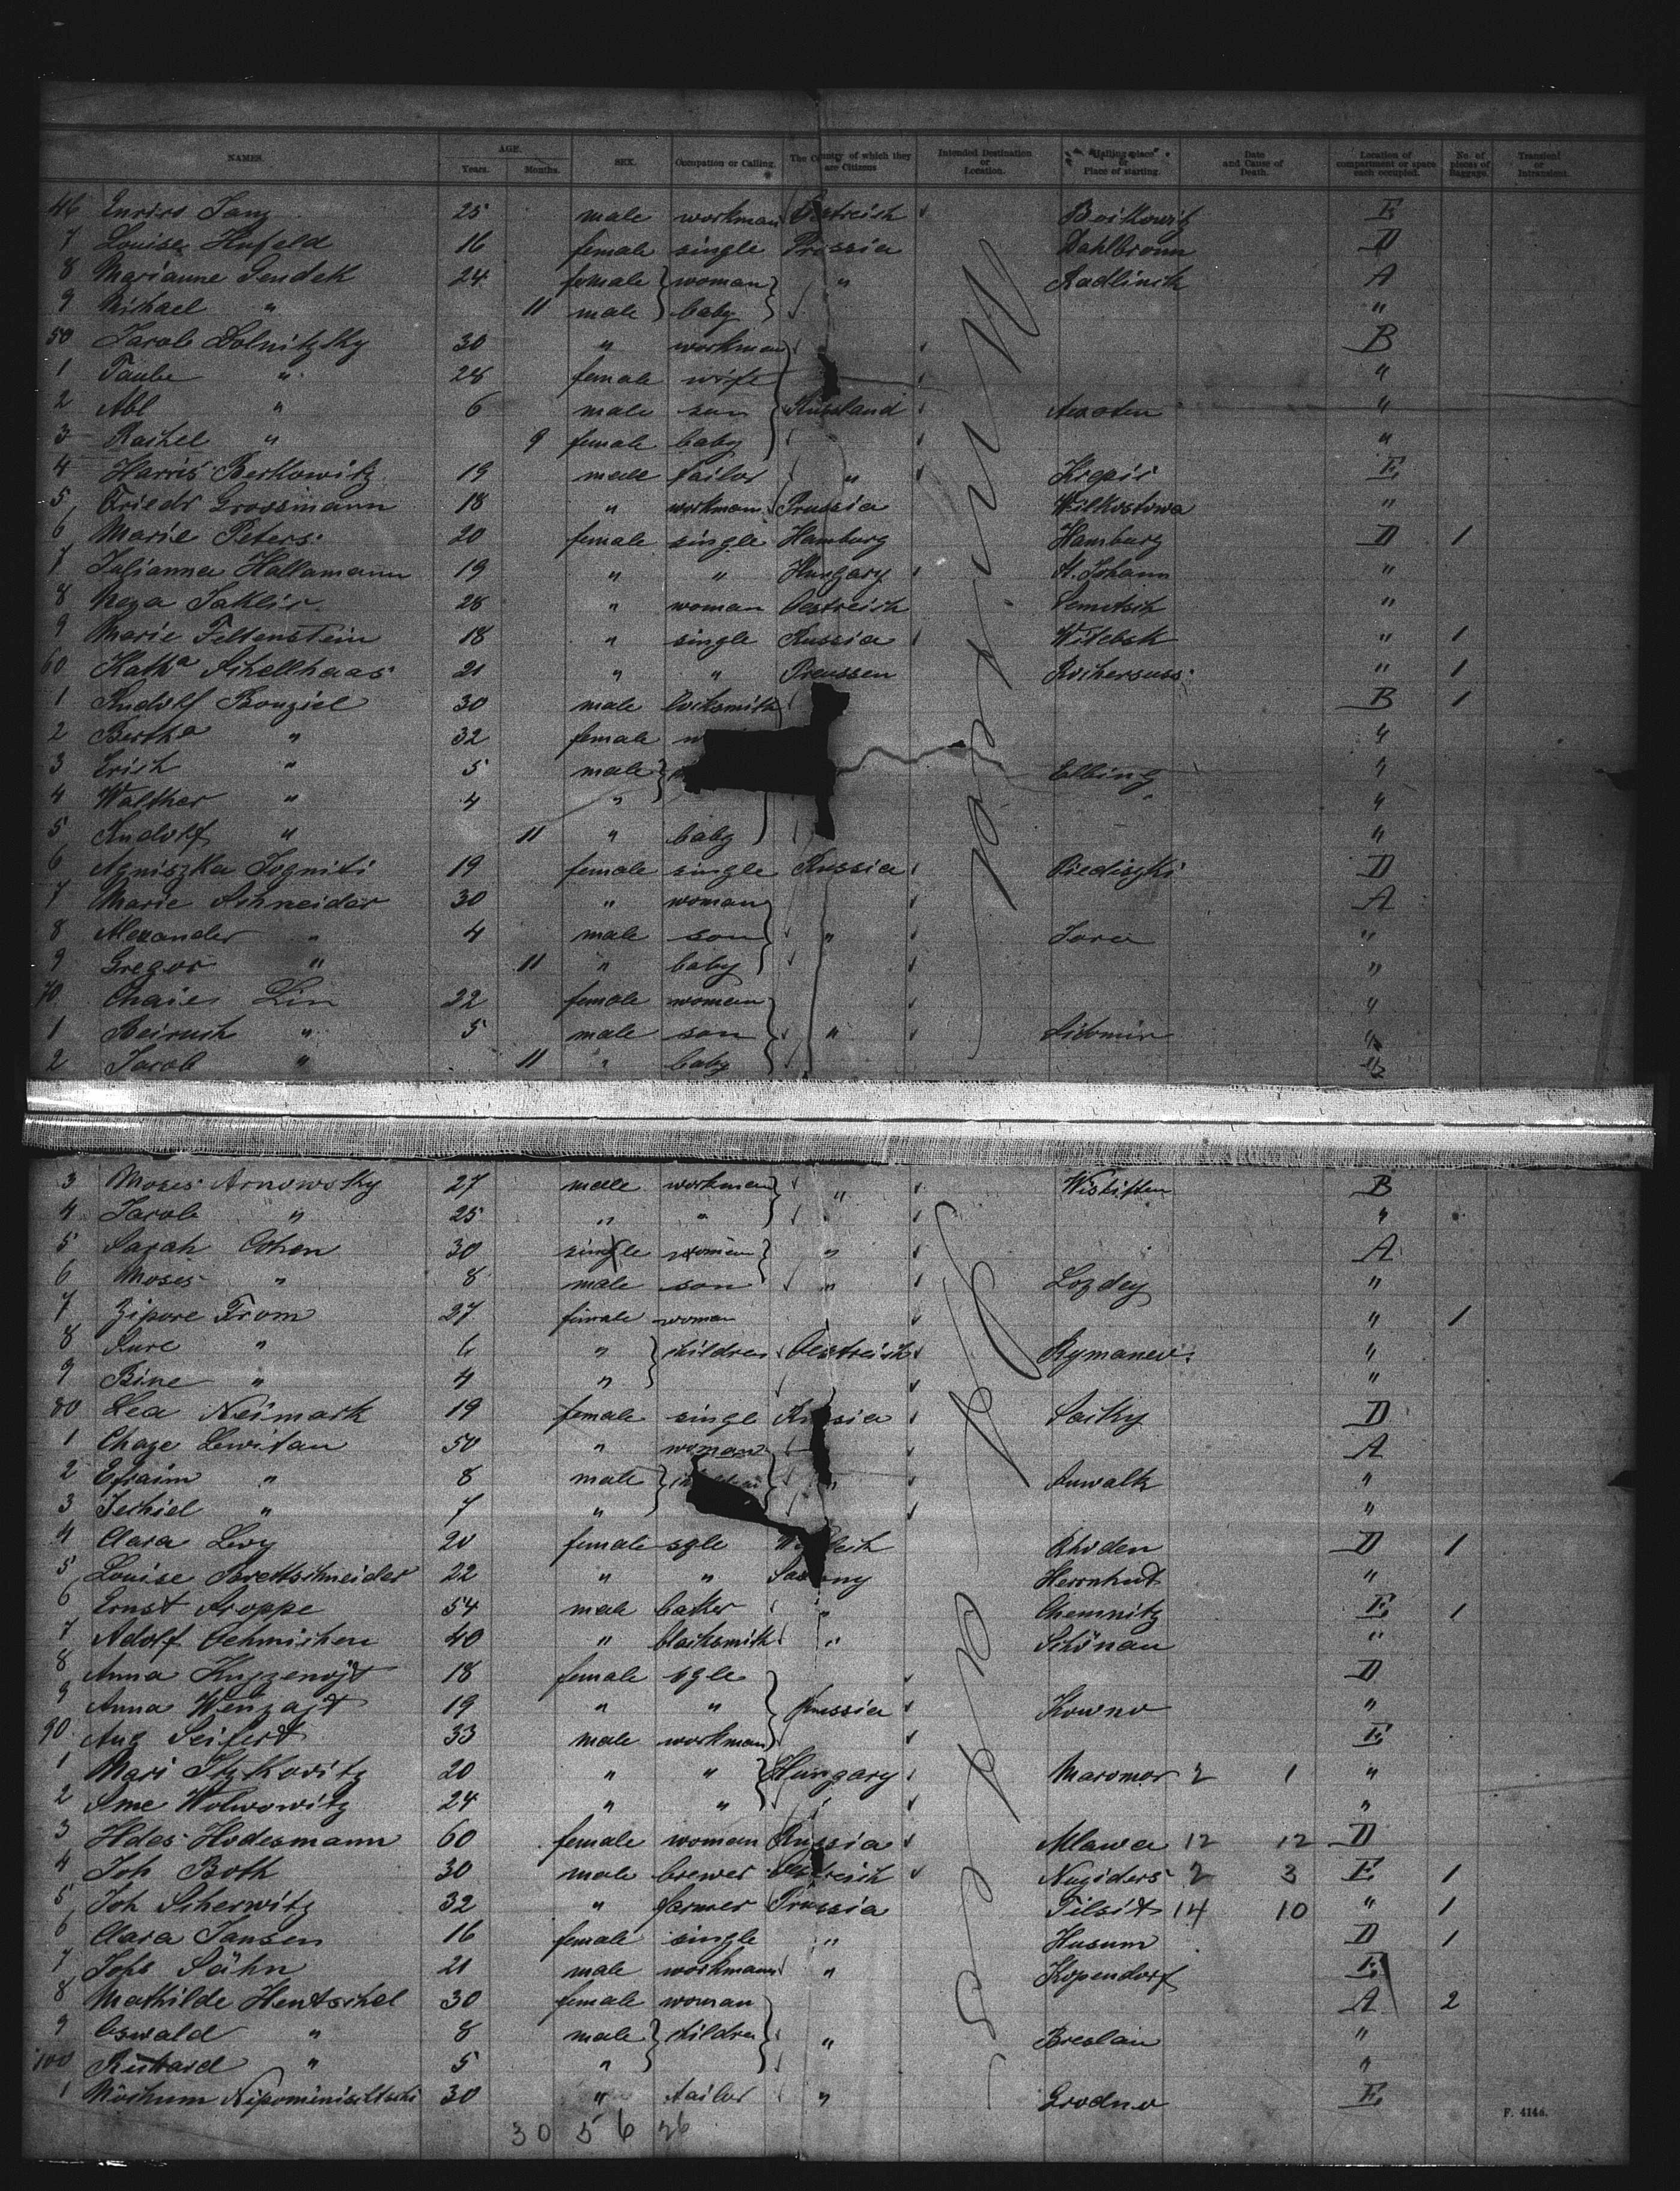 NAMES. AGE. Years. Months. SEX. Occupation or Calling. The Country of which they are Citizens Intended Destination or Location. "Hailing place" or Place of starting. Date and Cause of Death. Location of compartment or space each occupied. No. of pieces of Baggage. Transient or Intransient.
46 25 male workman Oestreich E
7 Louise Hufeld 16 female single Prussia Dahlbronn D
8 Marianne Gendek 24 female woman " Radlinek A
9 Michael " 11 male baby "
50 Jacob Dolnitzky 30 " workman B
1 Taube " 28 female wife "
2 Abl " 6 male son Russland "
3 Rachel " 9 female baby "
4 Harris Berkowitz 19 male tailor " E
5 Friedr Grossmann 18 " workman Prussia Wilkostowa "
6 Marie Peters 20 female single Hamburg Hamburg D 1
7 Julianna Hallamann 19 " " Hungary St. Johann "
8 Neza Saklic 28 " woman Oestreich Semitsch "
9 Marie Feltenstein 18 " single Russia Witebsk " 1
60 Katha Schellhaas 21 " " Preussen " 1
1 Rudolf Bonziel 30 male locksmith B 1
2 Bertha " 32 female "
3 Erich " 5 male Elbing "
4 Walther " 4 " "
5 Rudolf " 11 " baby "
6 Agniszka Jogniti 19 female single Russia Piediszki D
7 Marie Schneider 30 " woman A
8 Alexander " 4 male son " "
9 Gregor " 11 " baby "
70 Chaie Lin 22 female woman "
1 Beirusch " 5 male son " Sitomir "
2 Jacob " 11 " baby "
3 Moses Arnowsky 27 male workman " Wistitten B
4 Jacob " 25 " " "
5 Sarah Cohen 30 single women " A
6 Moses " 8 male son " Lozdey "
7 Zipore From 27 female woman " 1
8 Sure " 6 " children Oestreich Rymanew "
9 Bine " 4 " "
80 Lea Neimark 19 female single Russia D
1 Chaze Lewitan 50 " woman A
2 Efraim " 8 male " Suwalk "
3 Jechiel " 7 " "
4 Clara Levy 20 female sgle Rhoden D 1
5 Louise 22 " " Saxony Herrnhut "
6 Ernst Kroppe 54 male baker " Chemnitz E 1
7 Adolf Oehmichen 40 " blacksmith " Schönau "
8 Anna 18 female sgle D
9 Anna Wenzajt 19 " " Russia Kowno "
90 Aug Seifert 33 male workman E
1 Mari Itzkovitz 20 " " Hungary Maromor 2 1 "
2 Sme Wolwowitz 24 " " "
3 Hdes Hodesmann 60 female woman Russia Mlawa 12 12 D
4 Joh Both 30 male brewer Oestreich Nagiders 2 3 E 1
5 Joh Scherwitz 32 " farmer Prussia Tilsit 14 10 " 1
6 Clara Jansen 16 female single " Husum D 1
7 Johs Sähn 21 male workmann " Kopendorf E
8 Mathilde Hentschel 30 female woman A 2
9 Oswald " 8 male children " Breslau "
100 Richard " 5 " "
1 30 " tailor " Grodno E
30 5 6 26
F. 414a.